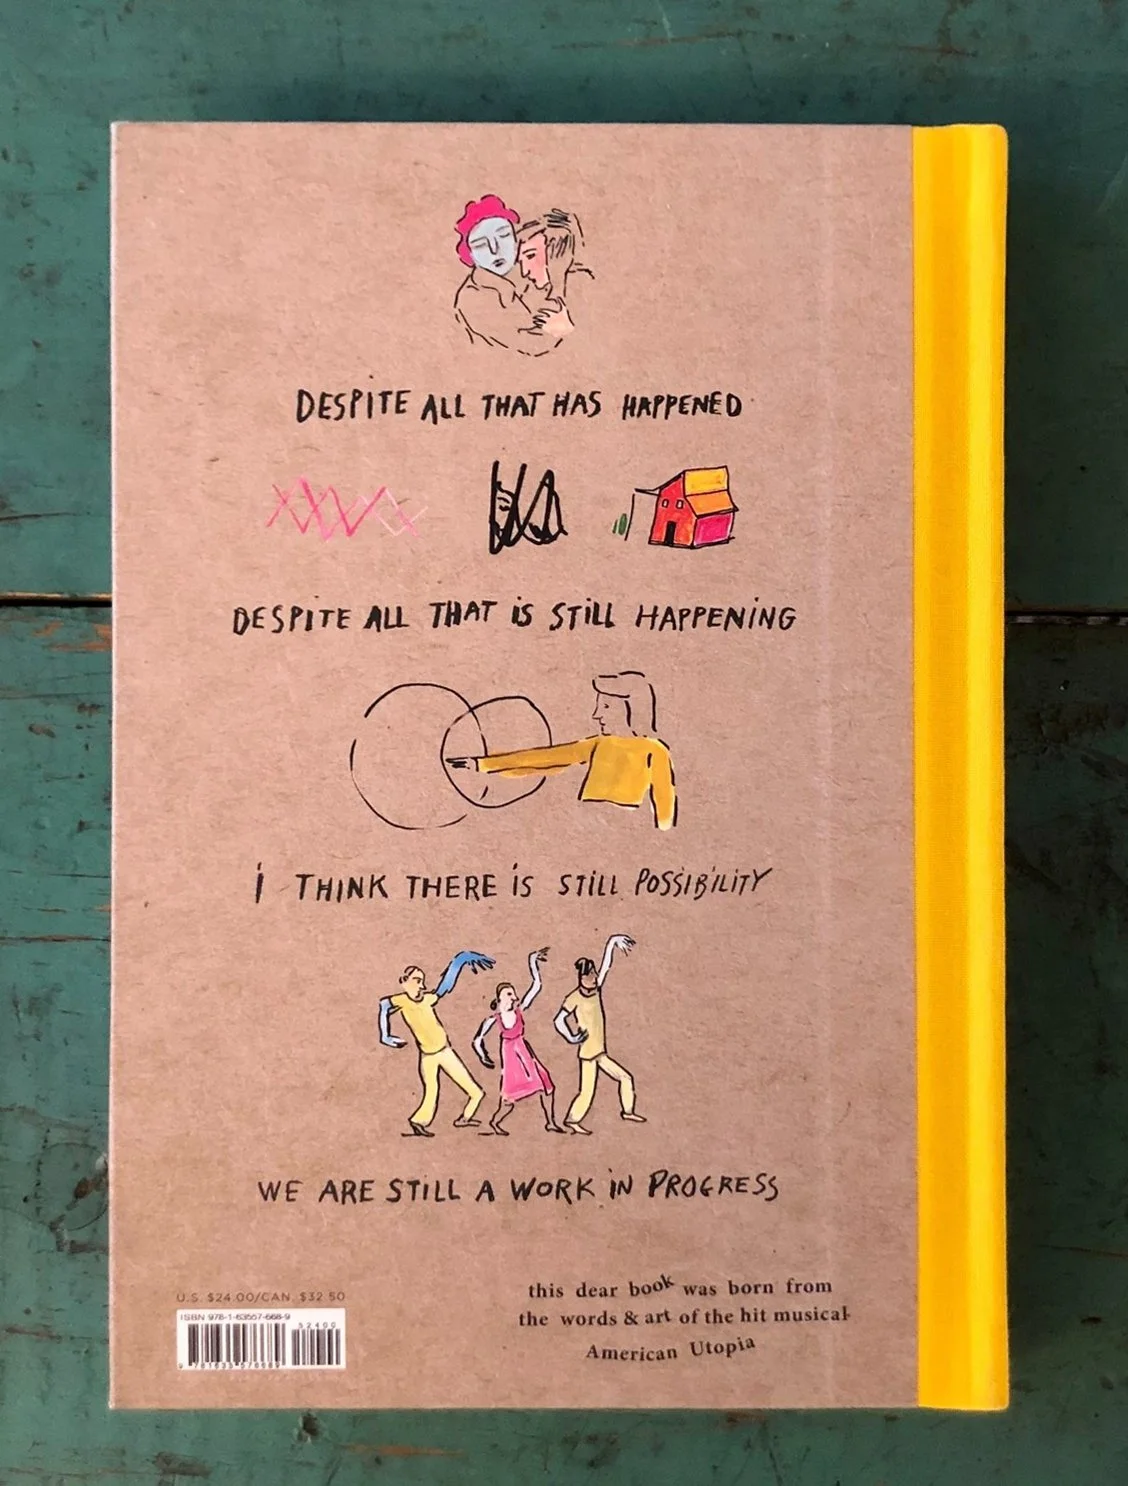 DESPITE ALL THAT HAS HAPPENED
DESPITE ALL THAT iS STiLL HAPPENING
i THINK THERE iS STILL POSSIBILITY
WE ARE STILL A WORK iN PROGRESS
this dear book was born from
the words & art of the hit musical
American Utopia
U.S. $24.00/CAN. $32.50
ISBN 978-1-63557-668-9
52400
9 781635 576689